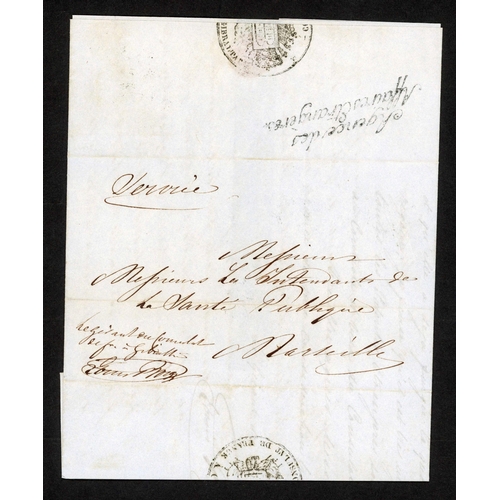 Agence des
Affaires Etrangères
Service
Messieurs
Messieurs Les Intendants de
La Santé Publique
Marseille
Le Gérant du Consulat
de fce à
CONSULAT DE FRANCE A